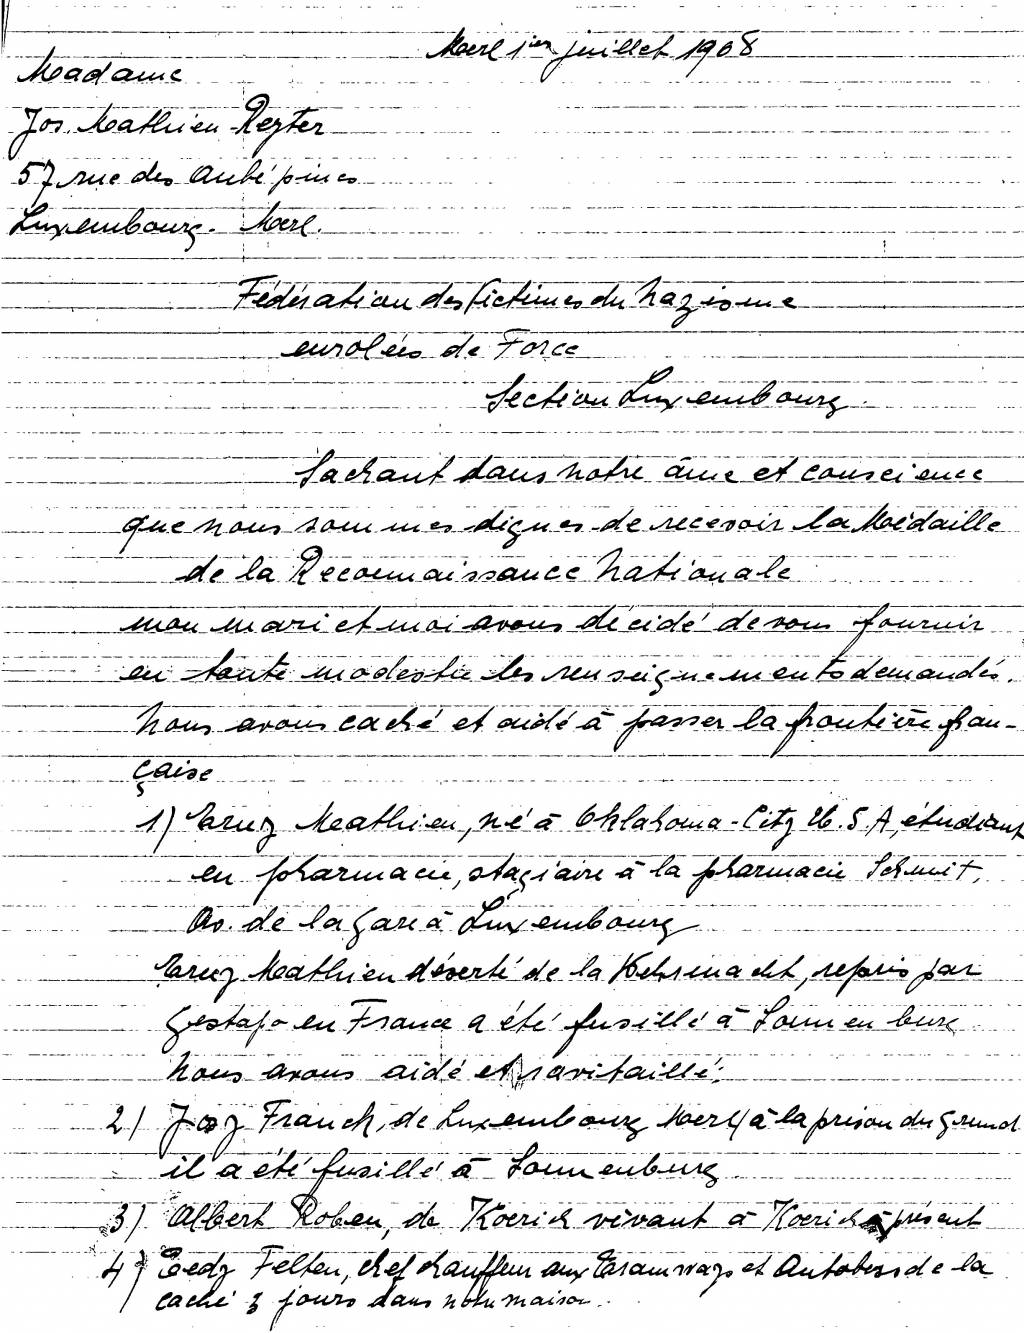 Merl 1ier juillet 1968
Madame
Jos. Mathieu-Reyter
57 rue des Aubépines
Luxembourg. Merl.
Fédération des Victimes du Nazisme
enrolées de Force
Section Luxembourg.
Sachant dans notre âme et conscience
que nous sommes dignes de recevoir la Médaille
de la Reconnaissance Nationale
mon mari et moi avons décidé de vous fournir
en toute modestie les renseignements demandés.
Nous avons caché et aidé à passer la frontière fran-
çaise
1) Erny Mathieu, né à Oklahoma-City U.S.A, étudiant
en pharmacie, stagiaire à la pharmacie Schmit,
Av. de la Gare à Luxembourg
Erny Mathieu déserté de la Wehrmacht, repris par
Gestapo en France a été fusillé à Sonnenburg
Nous avons aidé et ravitaillé:
2) Josy Franck, de Luxembourg Merl, à la prison du Grund
il a été fusillé à Sonnenburg
3) Albert Roben, de Koerich vivant à Koerich à présent
4) Tedy Felten, chef chauffeur aux Tramways et Autobus de la
caché 3 jours dans notre maison.